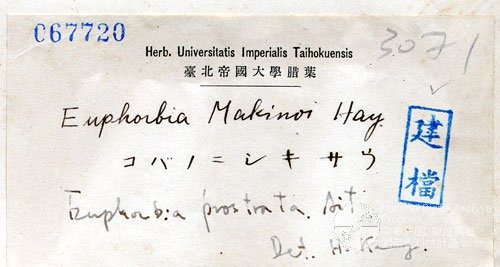 067720
3071
Herb. Universitatis Imperialis Taihokuensis
臺北帝國大學腊葉
Euphorbia Makinoi Hay.
コバノニシキサウ
建檔
Euphorbia prostrata Ait
Det. H.